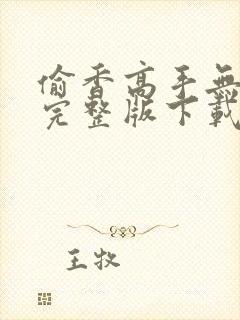 偷香高手無
完整版下載
王牧